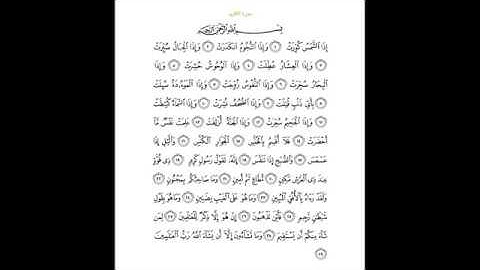 سورة التكوير
بِسْمِ اللَّهِ الرَّحْمَٰنِ الرَّحِيمِ
إِذَا الشَّمْسُ كُوِّرَتْ ١ وَإِذَا النُّجُومُ انكَدَرَتْ ٢ وَإِذَا الْجِبَالُ سُيِّرَتْ
٣ وَإِذَا الْعِشَارُ عُطِّلَتْ ٤ وَإِذَا الْوُحُوشُ حُشِرَتْ ٥ وَإِذَا
الْبِحَارُ سُجِّرَتْ ٦ وَإِذَا النُّفُوسُ زُوِّجَتْ ٧ وَإِذَا الْمَوْءُودَةُ سُئِلَتْ
٨ بِأَيِّ ذَنبٍ قُتِلَتْ ٩ وَإِذَا الصُّحُفُ نُشِرَتْ ١٠ وَإِذَا السَّمَاءُ كُشِطَتْ
١١ وَإِذَا الْجَحِيمُ سُعِّرَتْ ١٢ وَإِذَا الْجَنَّةُ أُزْلِفَتْ ١٣ عَلِمَتْ نَفْسٌ مَّا
أَحْضَرَتْ ١٤ فَلَا أُقْسِمُ بِالْخُنَّسِ ١٥ الْجَوَارِ الْكُنَّسِ ١٦ وَاللَّيْلِ إِذَا
عَسْعَسَ ١٧ وَالصُّبْحِ إِذَا تَنَفَّسَ ١٨ إِنَّهُ لَقَوْلُ رَسُولٍ كَرِيمٍ ١٩ ذِي قُوَّةٍ
عِندَ ذِي الْعَرْشِ مَكِينٍ ٢٠ مُّطَاعٍ ثَمَّ أَمِينٍ ٢١ وَمَا صَاحِبُكُم بِمَجْنُونٍ ٢٢
وَلَقَدْ رَآهُ بِالْأُفُقِ الْمُبِينِ ٢٣ وَمَا هُوَ عَلَى الْغَيْبِ بِضَنِينٍ ٢٤ وَمَا هُوَ بِقَوْلِ
شَيْطَانٍ رَّجِيمٍ ٢٥ فَأَيْنَ تَذْهَبُونَ ٢٦ إِنْ هُوَ إِلَّا ذِكْرٌ لِّلْعَالَمِينَ ٢٧ لِمَن
شَاءَ مِنكُمْ أَن يَسْتَقِيمَ ٢٨ وَمَا تَشَاءُونَ إِلَّا أَن يَشَاءَ اللَّهُ رَبُّ الْعَالَمِينَ
٢٩